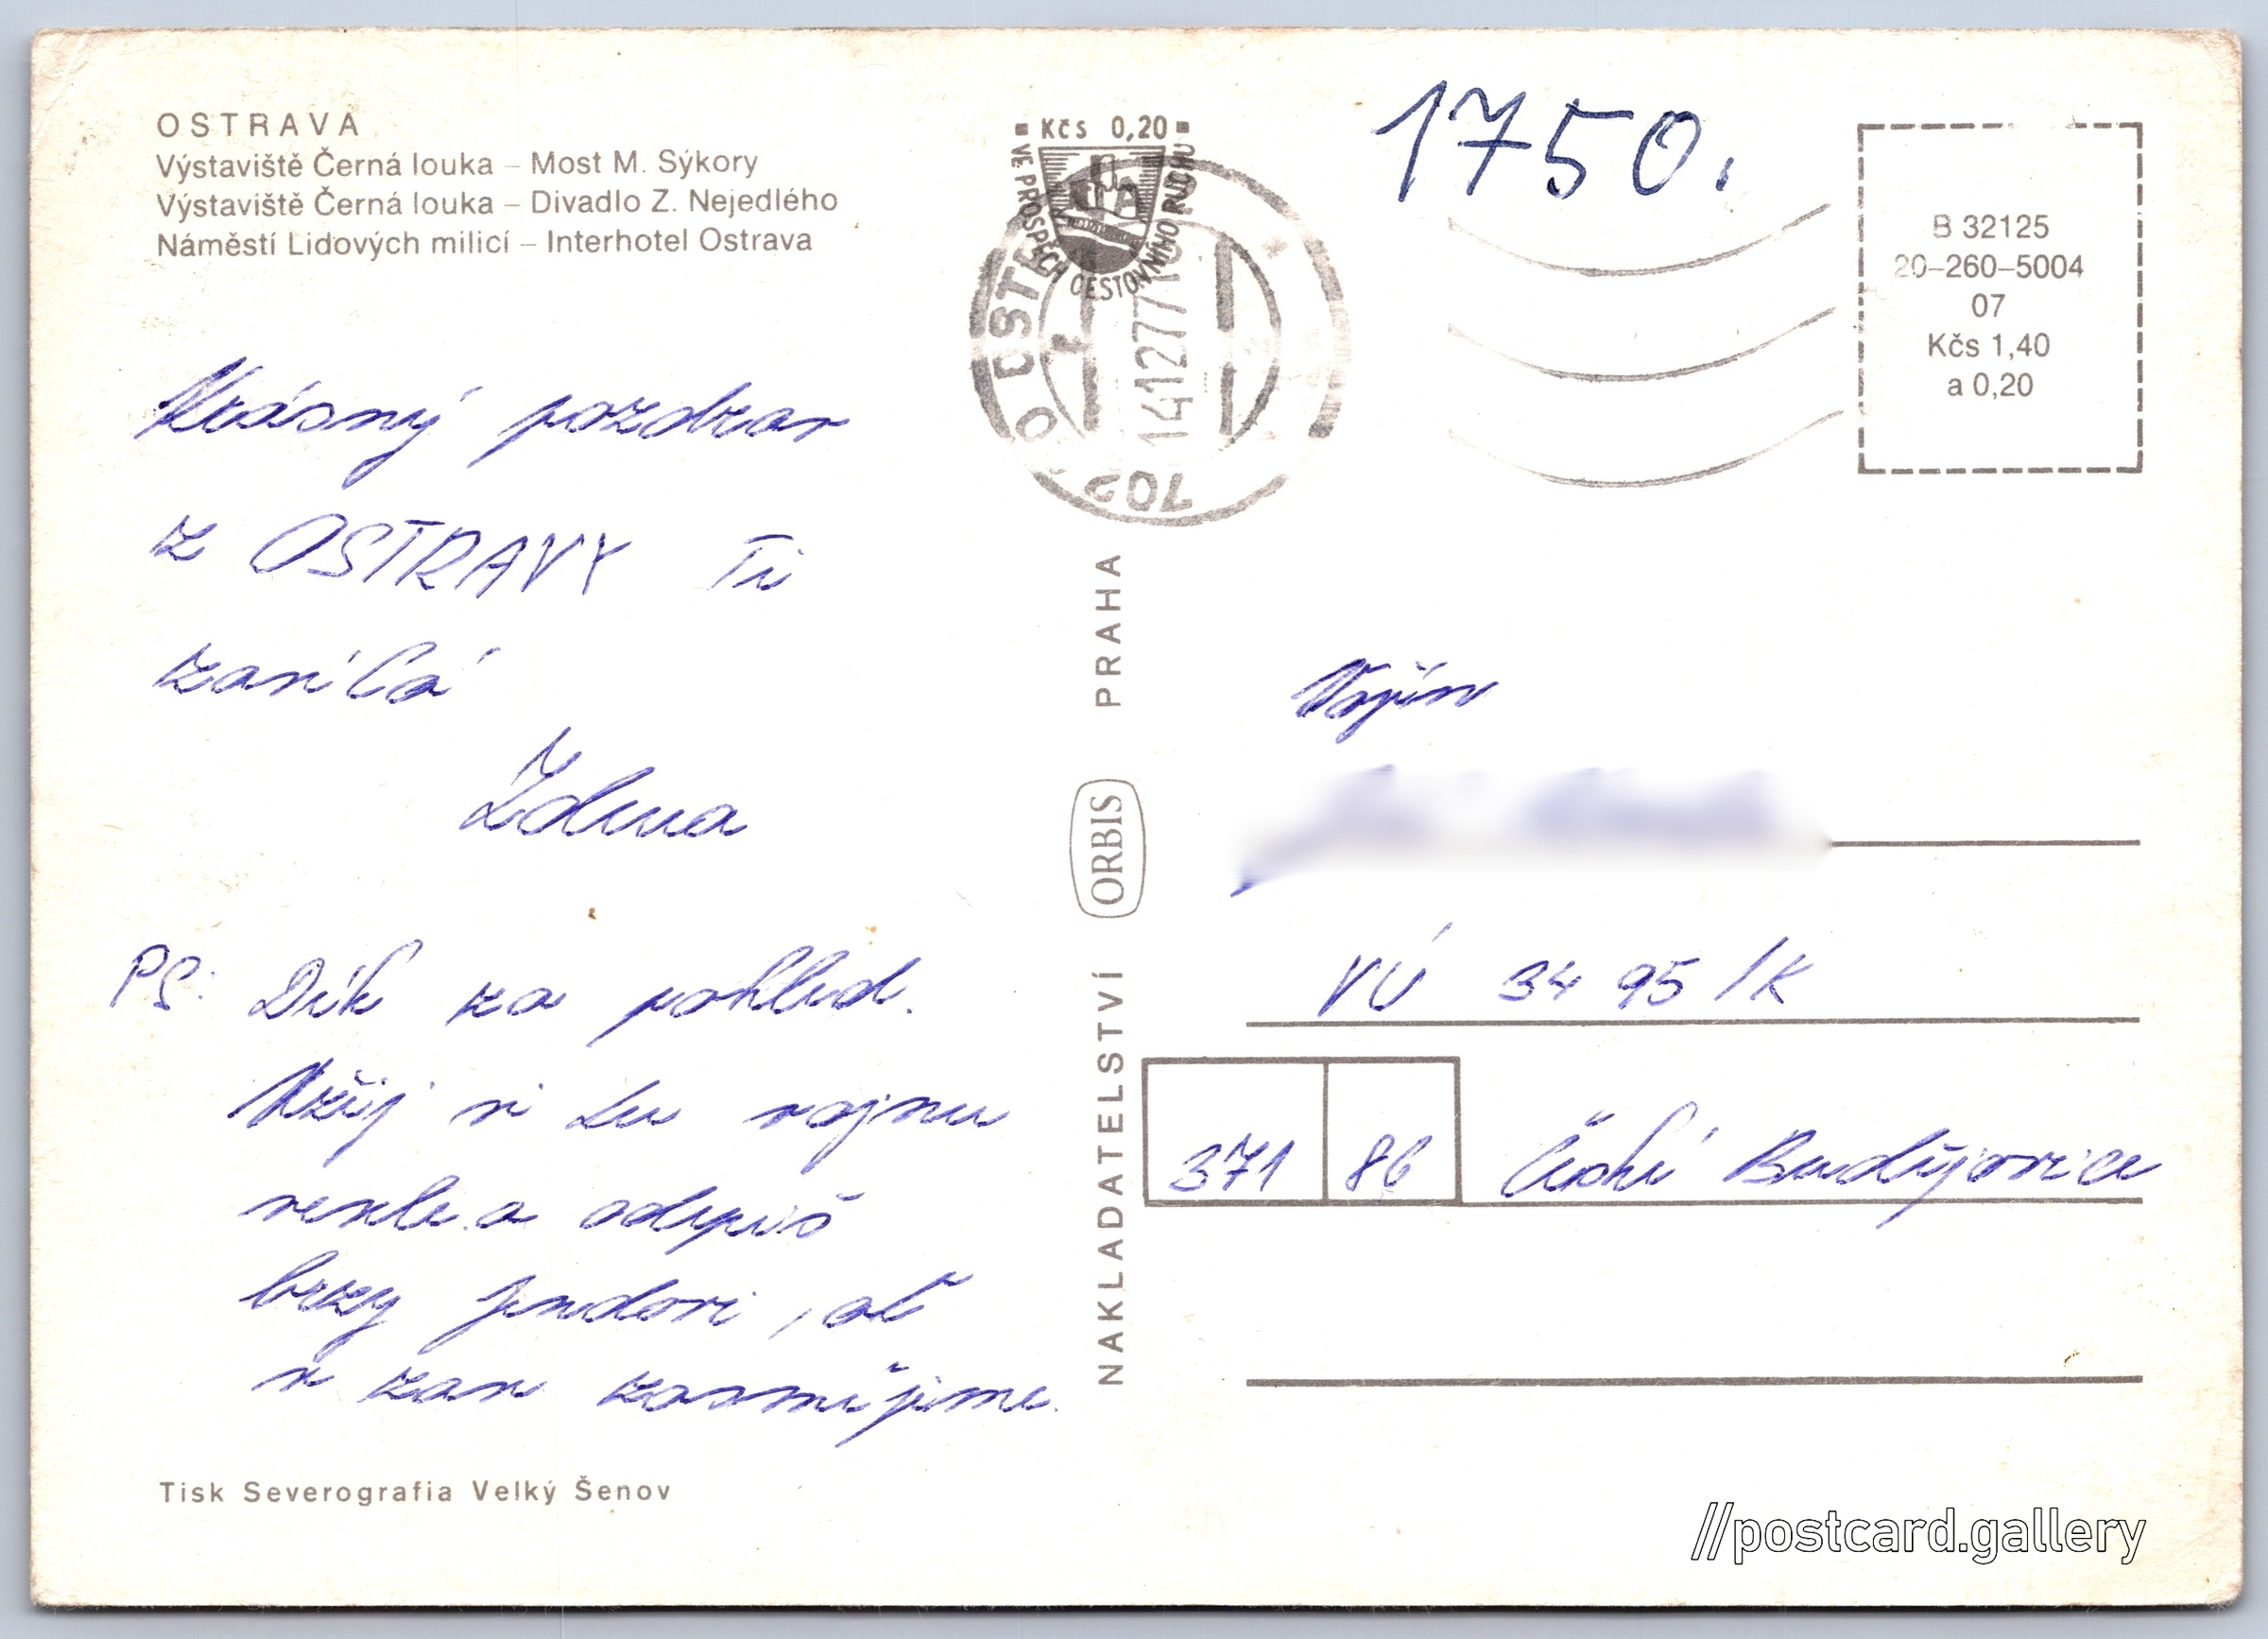 OSTRAVA
Výstaviště Černá louka – Most M. Sýkory
Výstaviště Černá louka – Divadlo Z. Nejedlého
Náměstí Lidových milicí – Interhotel Ostrava
Krásný pozdrav
z OSTRAVY Ti
zasílá
Zdena
PS: Dík za pohled.
Užij si tu vojnu
vesele a odepiš
brzy Jendovi, ať
se zas zasmějeme.
Tisk Severografia Velký Šenov
Kčs 0,20
VE PROSPĚCH CESTOVNÍHO RUCHU
14 12 77
702
1750.
B 32125
20–260–5004
07
Kčs 1,40
a 0,20
NAKLADATELSTVÍ ORBIS PRAHA
Vojín
VÚ 3495/K
371 86 České Budějovice
//postcard.gallery